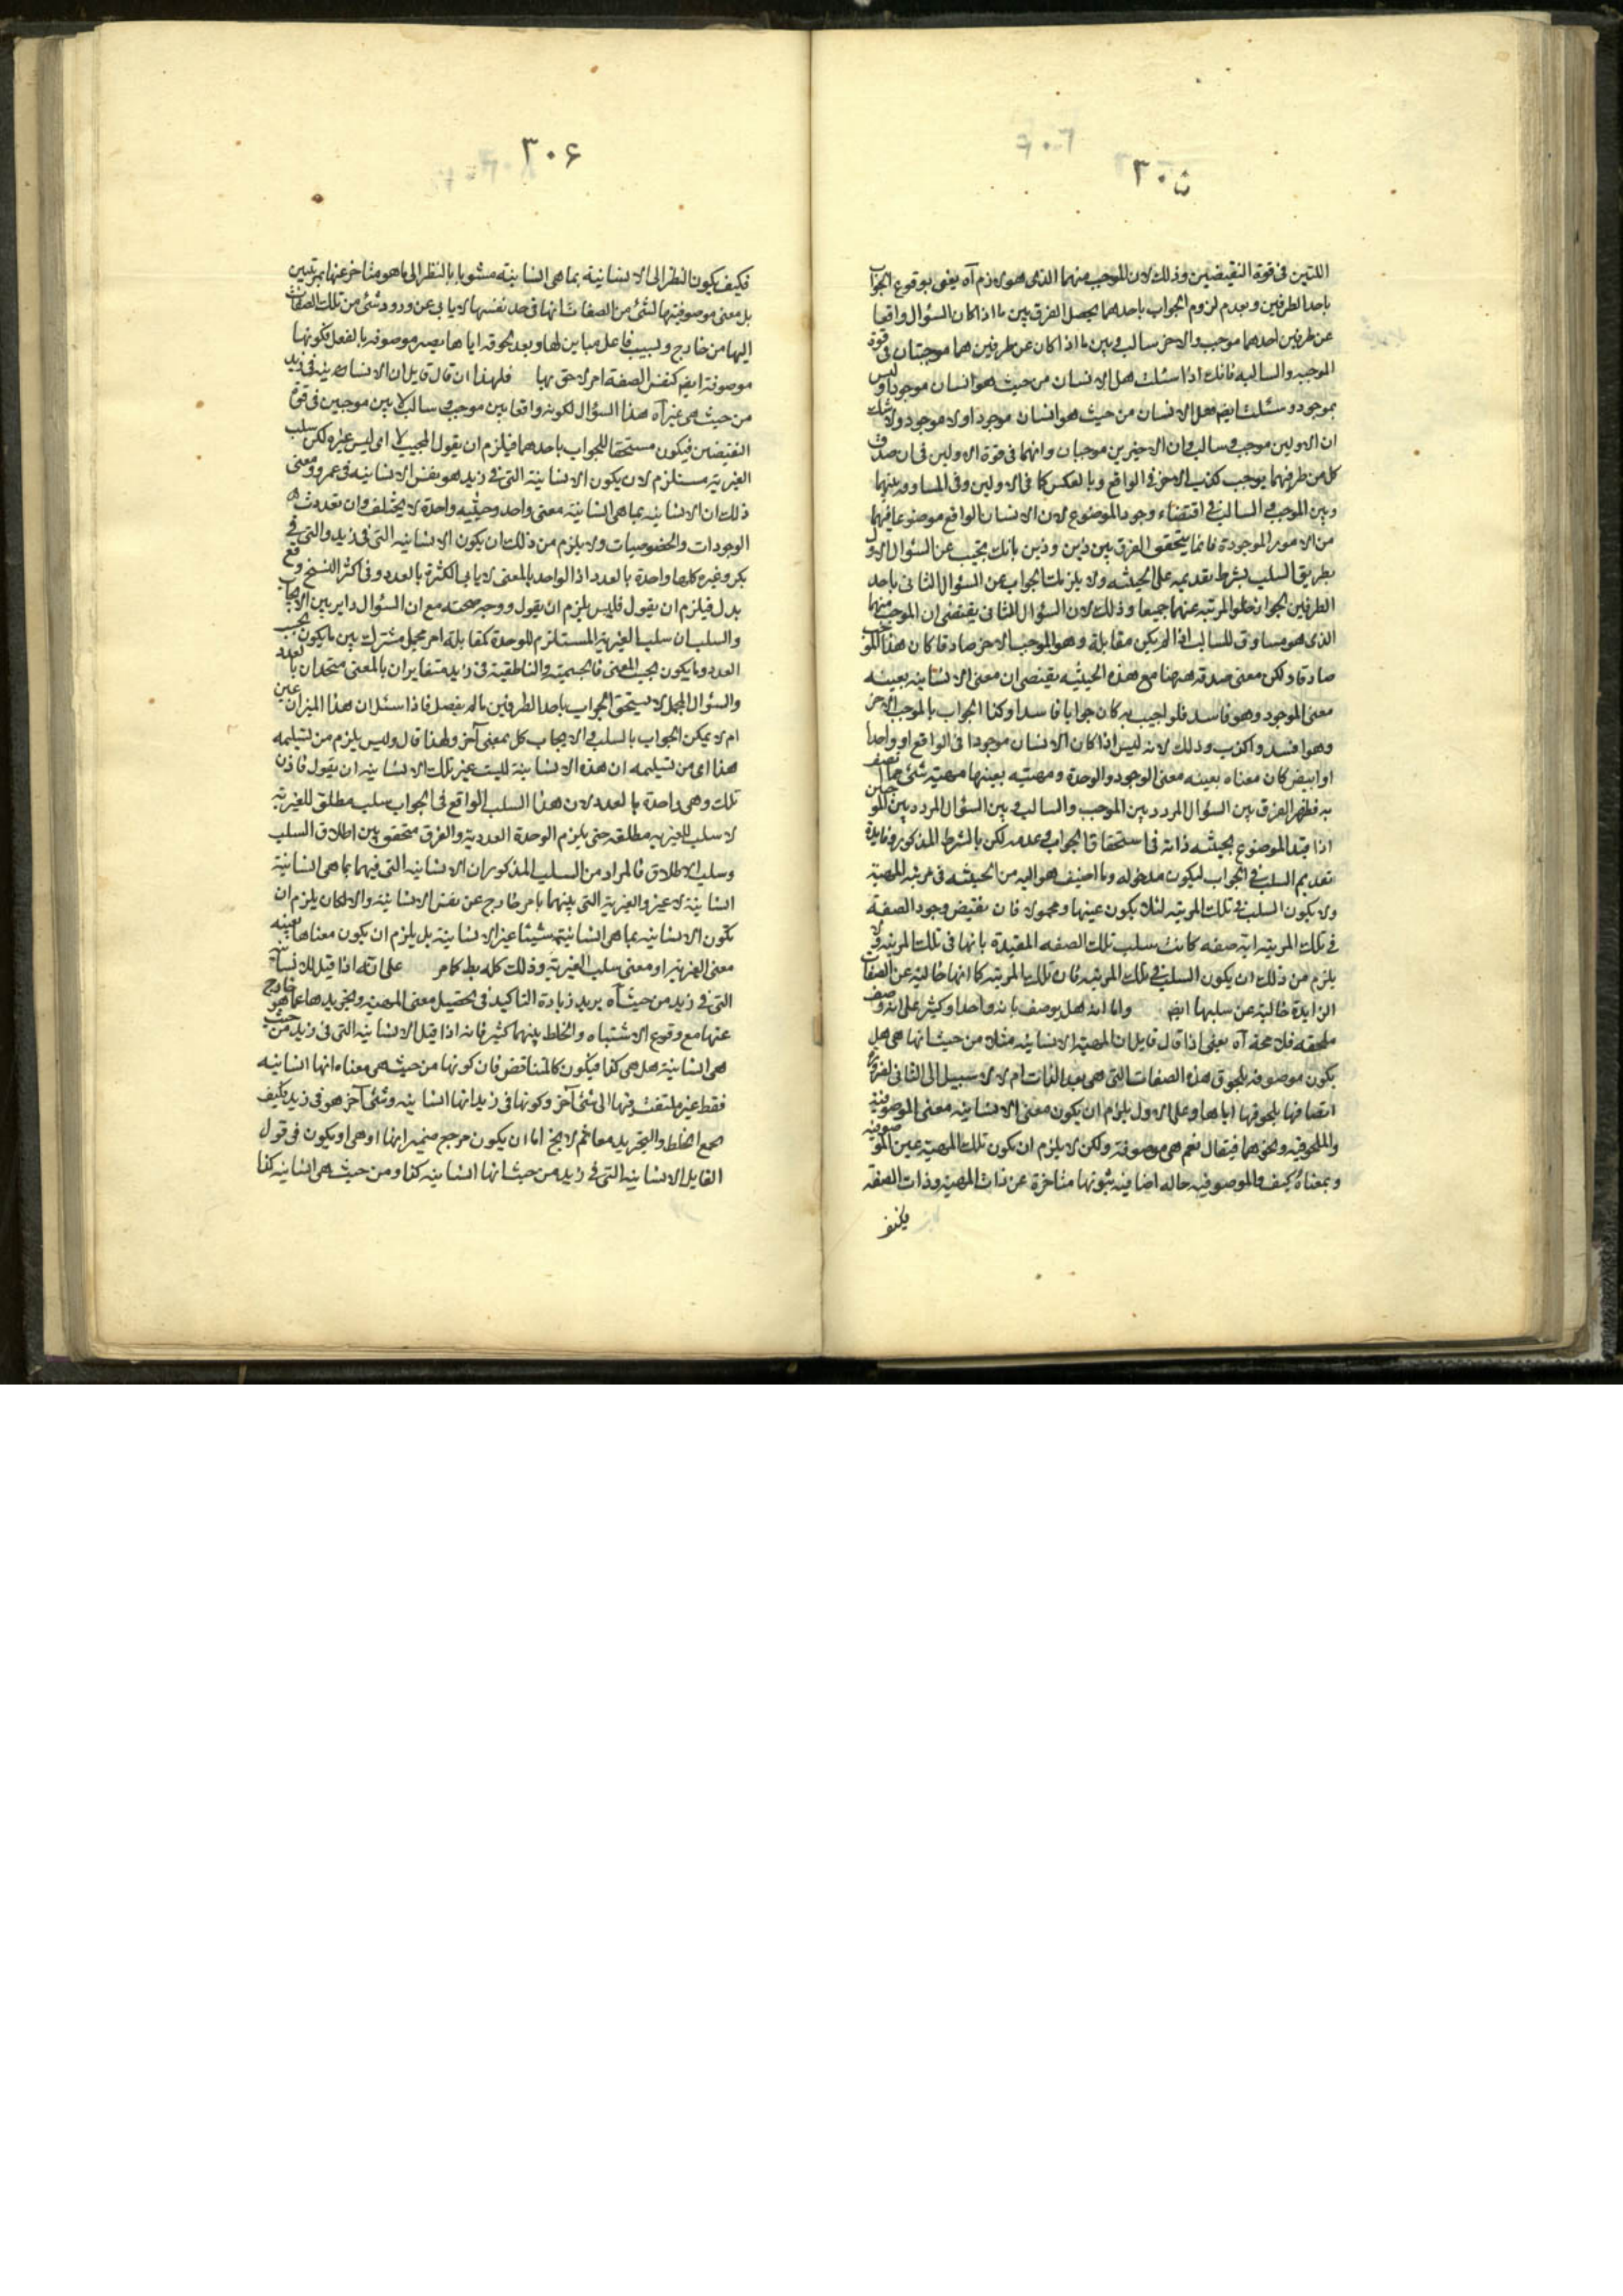 ٣٠٥
اللتين فى قوة النقيضين وذلك لان الموجب منهما الذى هو لازم آه يعنى بوقوع الجواب
باحد الطرفين وبعدم لزوم الجواب باحدهما يحصل الفرق بين ما اذا كان السؤال واقعا
عن طرفين احدهما موجب والاخر سالب وبين ما اذا كان عن طرفين هما موجبتان فى قوة
الموجبه والسالبه فانك اذا سئلت هل الانسان من حيث هو انسان موجود او ليس
بموجود وسئلت ايضا هل الانسان من حيث هو انسان موجود او لا موجود ولا شك
ان الاولين موجب وسالب وان الاخيرين موجبان وانهما فى قوة الاولين فى ان صدق
كل من طرفيهما يوجب كذب الاخر فى الواقع وبالعكس كما فى الاولين وفى المساوقه بينهما
وبين الموجب والسالب فى اقتضاء وجود الموضوع لان الانسان الواقع موضوعا فيهما
من الامور الموجودة فانما يتحقق الفرق بين ذين وذين بانك تجيب عن السؤال الاول
بطريق السلب بشرط تقديمه على الحيثيه ولا يلزمك الجواب عن السؤال الثانى باحد
الطرفين لجواز خلو المرتبه عنهما جميعا وذلك لان السؤال الثانى يقتضى ان الموجب منهما
الذى هو مساوق للسالب اذا لم يكن مقابله وهو الموجب الاخر صادقا كان هذا الموجب
صادقا ولكن معنى صدقه ههنا مع هذه الحيثيه يقتضى ان معنى الانسانيه بعينه
معنى الموجود وهو فاسد فلو اجيب به كان جوابا فاسدا وكذا الجواب بالموجب الاخر
وهو افسد واكذب وذلك لانه ليس اذا كان الانسان موجودا فى الواقع او واحدا
او ابيض كان معناه بعينه معنى الوجود والوحدة ومهيته بعينها مهية شئ مما اتصف
به فظهر الفرق بين السؤال المردد بين الموجب والسالب وبين السؤال المردد بين الموجبين
اذا قيد الموضوع بحيثيه ذاته فى استحقاق الجواب وعدمه لكن بالشرط المذكور وفايدة
تقديم السلب فى الجواب ليكون مدخوله وما اضيف هو اليه من الحيثيه فى مرتبه المهية
ولا يكون السلب فى تلك المرتبه لئلا يكون عينها ومحمولا فان نقيض وجود الصفة
فى تلك المرتبه اية صفه كانت سلب تلك الصفه المقيدة بانها فى تلك المرتبه ولا
يلزم من ذلك ان يكون السلب فى تلك المرتبه فان تلك المرتبه كما انها خالية عن الصفات
الزايدة خالية عن سلبها ايضا واما انه هل يوصف بانه واحد او كثير على انه وصف
ملحقه فلا محة آه يعنى اذا قال قايل ان المهية الانسانيه مثلا من حيث انها هى هل
يكون موصوفه بلحوق هذه الصفات التى هى بعد الذات ام لا لا سبيل الى الثانى لضرورة
اتصافها بلحوقها اياها وعلى الاول يلزم ان يكون معنى الانسانيه معنى الموصوفية
والملحوقيه ونحوهما فيقال نعم هى موصوفة ولكن لا يلزم ان تكون تلك المهية عين الموصوفيه
وبمعناه كيف والموصوفيه حاله اضافيه ثبوتها متاخرة عن ذات المهية وذات الصفة
فكيف
٣٠٦
فكيف يكون النظر الى الانسانية بما هى انسانية مشوبا بالنظر الى ما هو متاخر عنها بمرتبتين
بل معنى موصوفيتها لشئ من الصفات انها فى حد نفسها لا يابى عن ورود شئ من تلك الصفات
اليها من خارج وبسبب فاعل مباين لها وبعد لحوقه اياها يصير موصوفه بالفعل فكونها
موصوفة ايضا كنفس الصفة امر لاحق بها فلهذا ان قال قايل ان الانسانيه فى زيد
من حيث هى غير آه هذا السؤال لكونه واقعا بين موجب وسالب لا بين موجبين فى قوة
النقيضين فيكون مستحقا للجواب باحدهما فيلزم ان يقول المجيب لا اى ليس غير ولكن سلب
الغيرية مستلزم لان يكون الانسانية التى فى زيد هو بنفس الانسانيه فى عمرو ومعنى
ذلك ان الانسانيه بما هى انسانية معنى واحد وحيثيه واحدة لا يختلف وان تعددت
الوجودات والخصوصيات ولا يلزم من ذلك ان يكون الانسانيه التى فى زيد والتى فى
بكر وغيره كلها واحدة بالعدد اذ الواحد بالمعنى لا يابى الكثرة بالعدد وفى اكثر النسخ وقع
بدل فيلزم ان يقول فليس يلزم ان يقول ووجه صحته مع ان السؤال داير بين الايجاب
والسلب ان سلب الغيرية المستلزم للوحدة كمقابله امر مجمل مشترك بين ما يكون بحسب
العدد وما يكون بحسب المعنى فالجسمية والناطقية فى زيد متغايران بالمعنى متحدان بالعدد
والسؤال المجمل لا يستحق الجواب باحد الطرفين ما لم يفصل فاذا سئل ان هذا الميزان عين
ام لا يمكن الجواب بالسلب والايجاب كل بمعنى آخر ولهذا قال وليس يلزم من تسليمه
هذا اى من تسليمه ان هذه الانسانية ليست غير تلك الانسانيه ان يقول فاذن
تلك وهى واحدة بالعدد لان هذا السلب الواقع فى الجواب سلب مطلق للغيرية
لا سلب لغيريه مطلقه حتى يلزم الوحدة العددية والفرق متحقق بين اطلاق السلب
وسلب الاطلاق فالمراد من السلب المذكور ان الانسانيه التى فيهما بما هى انسانية
انسانية لا غير والغيرية التى بينهما بامر خارج عن نفس الانسانية والا لكان يلزم ان
تكون الانسانيه بما هى انسانية شيئا غير الانسانية بل يلزم ان يكون معناها بعينه
معنى الغيرية او معنى سلب الغيرية وذلك كله بط كما مر على انه اذا قيل للانسانية
التى فى زيد من حيث آه يريد زيادة التاكيد فى تحصيل معنى المهية وتجريدها عما هو خارج
عنها مع وقوع الاشتباه والخلط بينهما كثيرا فانه اذا قيل الانسانيه التى فى زيد من حيث
هى انسانية هل هى كذا فيكون كالمتناقض فان كونها من حيث هى معناه انها انسانيه
فقط غير ملتفت فيها الى شئ آخر وكونها فى زيد انها انسانيه وشئ آخر هو فى زيد فكيف
يجمع الخلط والتجريد معا ثم لا يخ اما ان يكون مرجع ضمير انها او هى او يكون فى قول
القايل الانسانيه التى فى زيد من حيث انها انسانيه كذا ومن حيث هى انسانيه كذا